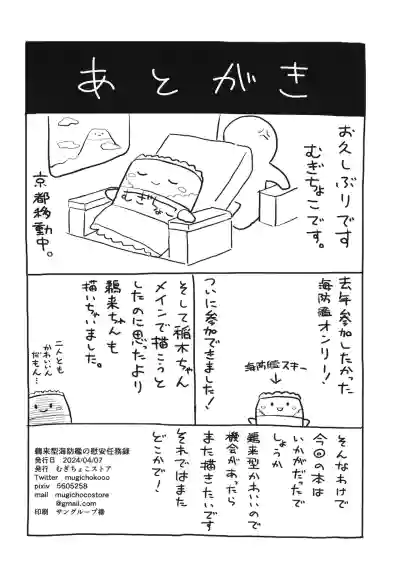 あとがき
お久しぶりです
むぎちょこです。
むぎちょこ
京都移動中。
去年参加したかった
海防艦オンリー!
海防艦スキー
ついに参加できました!
そして稲木ちゃん
メインで描こうと
したのに思ったより
鵜来ちゃんも
描いちゃいました。
二人とも
かわいいん
だもん…
そんなわけで
今回の本は
いかがだったで
しょうか
鵜来型かわいいので
機会があったら
また描きたいです
それではまた
どこかで!
鵜来型海防艦の慰安任務録
発行日 2024/04/07
発行 むぎちょこストア
Twitter mugichokooo
pixiv 5605258
mail mugichocostore
@gmail.com
印刷 サングループ様